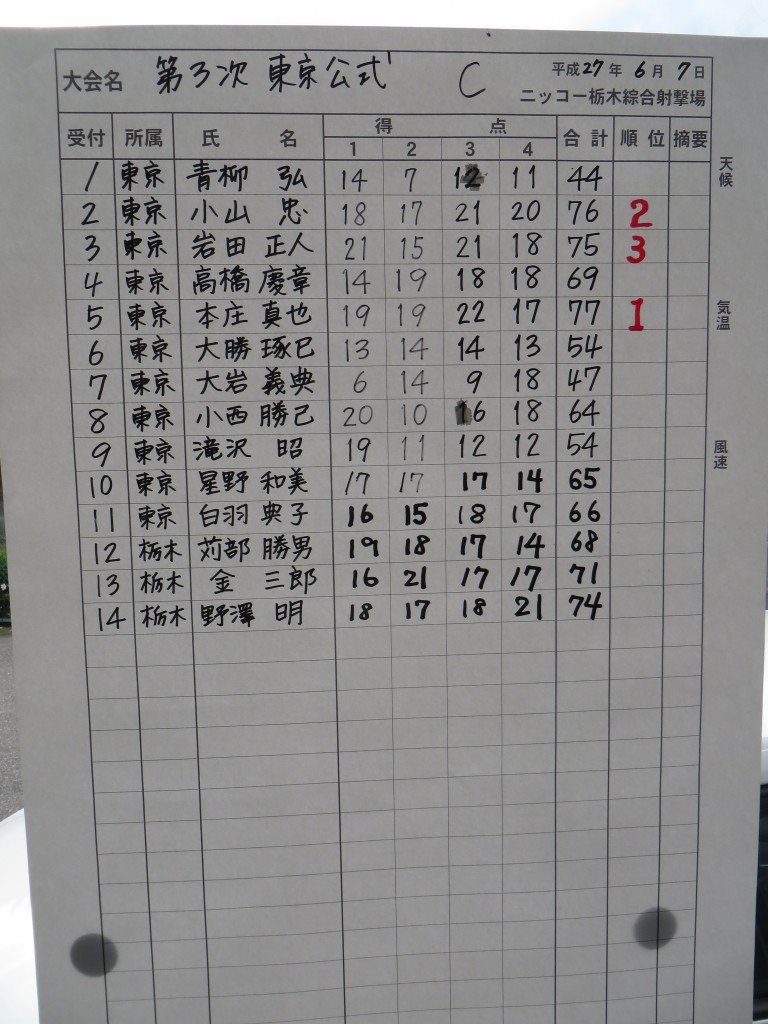 大会名 第3次 東京公式 C 平成27年6月7日
ニッコー栃木綜合射撃場
受付 所属 氏名 得点 合計 順位 摘要
1 2 3 4
1 東京 青柳 弘 14 7 12 11 44
2 東京 小山 忠 18 17 21 20 76 2
3 東京 岩田 正人 21 15 21 18 75 3
4 東京 高橋 慶章 14 19 18 18 69
5 東京 本庄 真也 19 19 22 17 77 1
6 東京 大勝 琢巳 13 14 14 13 54
7 東京 大岩 義典 6 14 9 18 47
8 東京 小西 勝己 20 10 16 18 64
9 東京 滝沢 昭 19 11 12 12 54
10 東京 星野 和美 17 17 17 14 65
11 東京 白羽 典子 16 15 18 17 66
12 栃木 苅部 勝男 19 18 17 14 68
13 栃木 金 三郎 16 21 17 17 71
14 栃木 野澤 明 18 17 18 21 74
天候
気温
風速